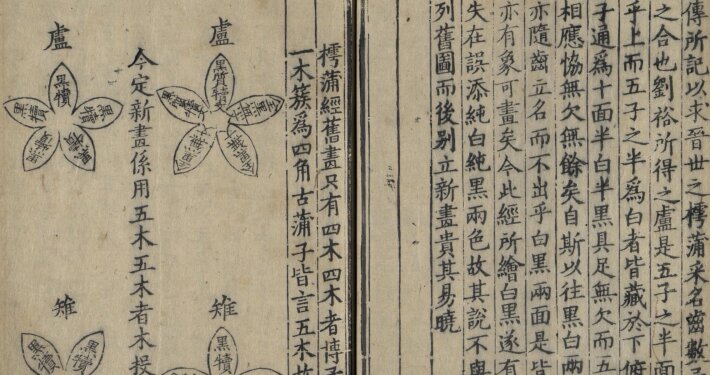 傳所記以求晉世之樗蒲采名齒數
之合也劉裕所得之盧是五子之半面
乎上而五子之半爲白者皆藏於下俯
子通爲十面半白半黑具足無欠而五
相應恊無欠無餘矣自斯以往黑白兩
亦隨齒立名而不出乎白黑兩面是皆
亦有象可畫矣今此經所繪白黑遂有
失在誤添純白純黑兩色故其說不與
列舊圖而後别立新畫貴其易曉
樗蒲經舊畫只有四木四木者博
一木簇爲四角古蒲子皆言五木
盧
黑犢
雉
黑犢
今定新畫係用五木五木者木投
盧
黑犢
黑犢
黑犢
黑犢
黑犢
雉
黑犢